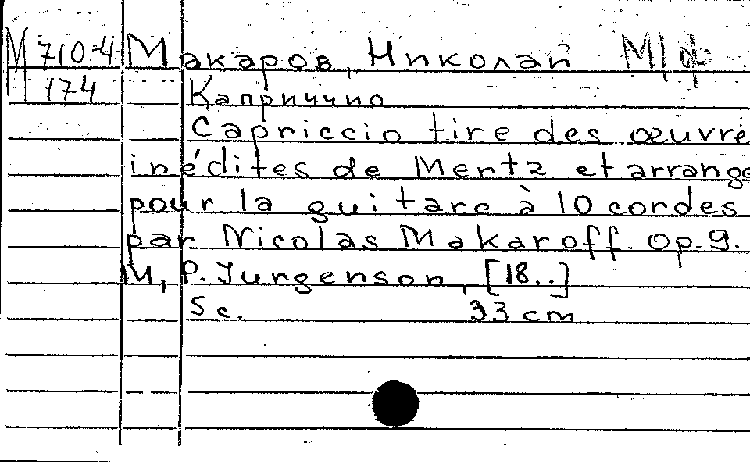 М 710-4 Макаров, Николай М/ф
174 Каприччио
Capriccio tire des œuvre
inédites de Mertz et arrange
pour la guitare à 10 cordes
par Nicolas Makaroff. op. 9.
М, P. Jurgenson, [18..]
5 c. 33 cm